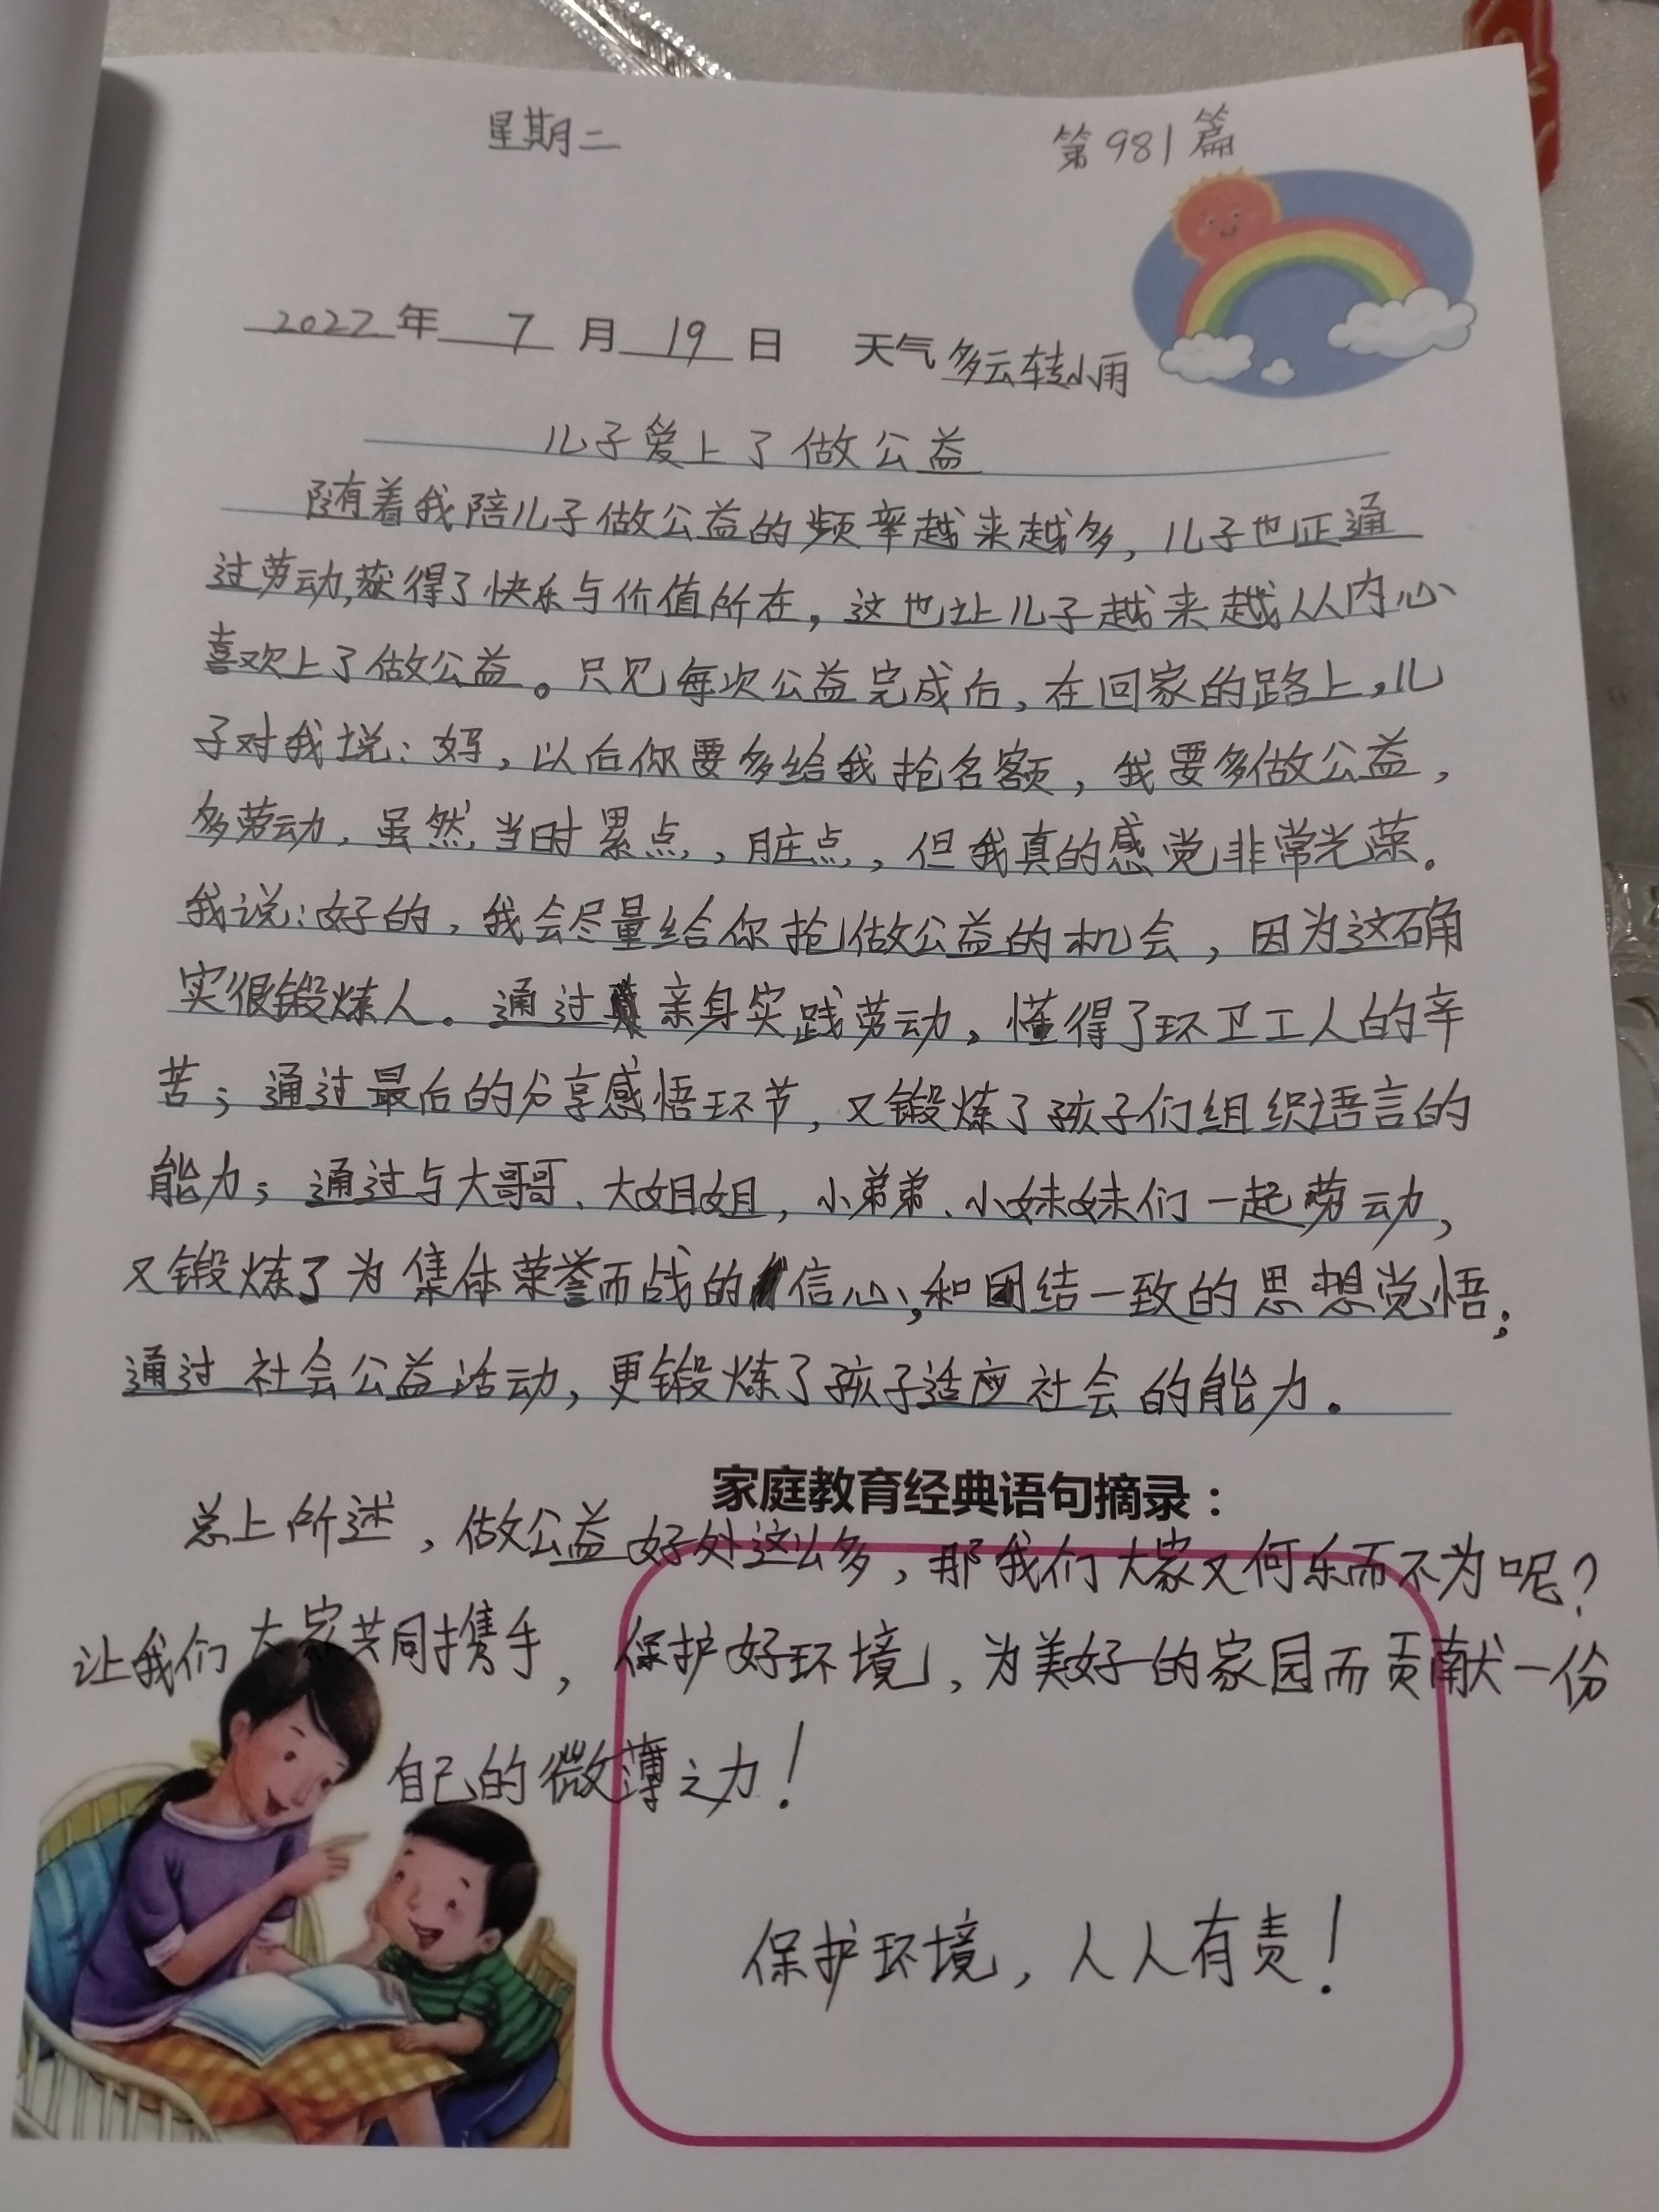 星期二 第981篇
2022年7月19日 天气 多云转小雨
儿子爱上了做公益
随着我陪儿子做公益的频率越来越多，儿子也正通
过劳动，获得了快乐与价值所在，这也让儿子越来越从内心
喜欢上了做公益。只见每次公益完成后，在回家的路上，儿
子对我说：妈，以后你要多给我抢名额，我要多做公益，
多劳动，虽然当时累点，脏点，但我真的感觉非常光荣。
我说：好的，我会尽量给你抢做公益的机会，因为这确
实很锻炼人。通过亲身实践劳动，懂得了环卫工人的辛
苦；通过最后的分享感悟环节，又锻炼了孩子们组织语言的
能力；通过与大哥哥、大姐姐，小弟弟、小妹妹们一起劳动，
又锻炼了为集体荣誉而战的信心，和团结一致的思想觉悟；
通过社会公益活动，更锻炼了孩子适应社会的能力。
家庭教育经典语句摘录：
总上所述，做公益好处这么多，那我们大家又何乐而不为呢？
让我们大家共同携手，保护好环境，为美好的家园而贡献一份
自己的微薄之力！
保护环境，人人有责！